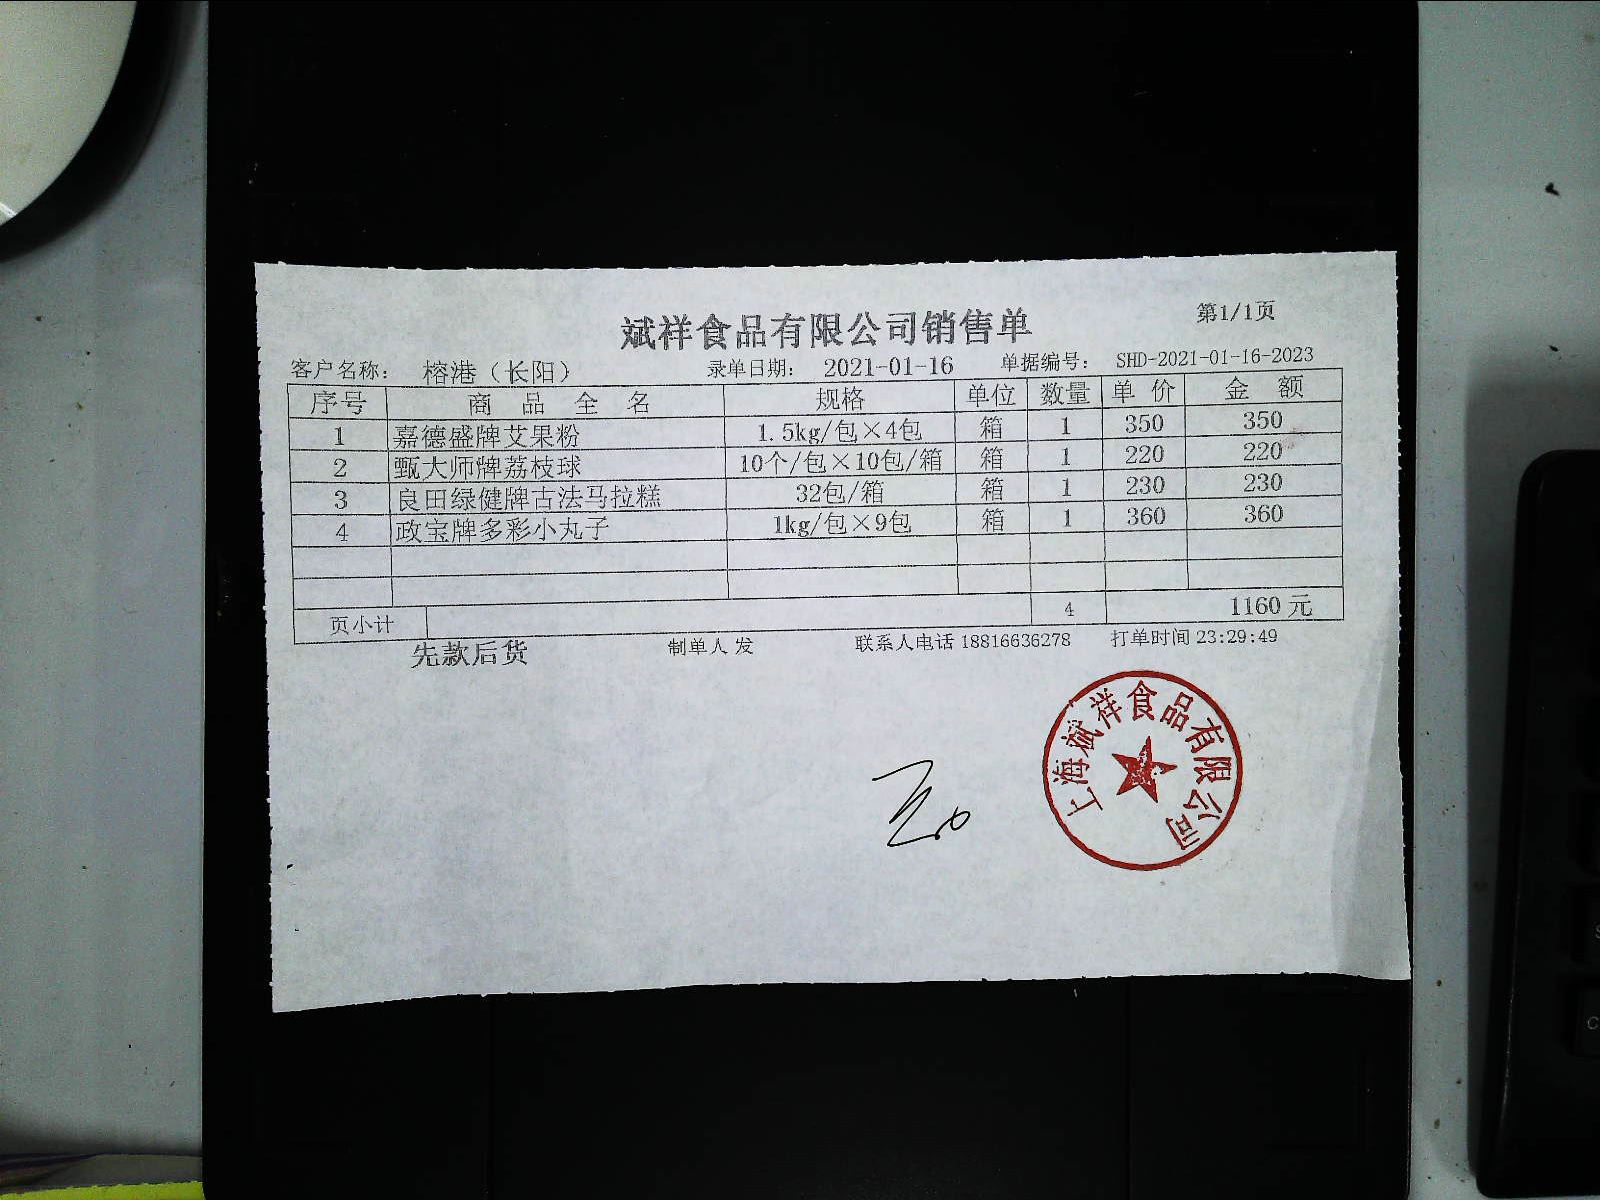 第1/1页
斌祥食品有限公司销售单
客户名称： 榕港（长阳） 录单日期： 2021-01-16 单据编号： SHD-2021-01-16-2023
序号 商品全名 规格 单位 数量 单价 金额
1 嘉德盛牌艾果粉 1.5kg/包×4包 箱 1 350 350
2 甄大师牌荔枝球 10个/包×10包/箱 箱 1 220 220
3 良田绿健牌古法马拉糕 32包/箱 箱 1 230 230
4 政宝牌多彩小丸子 1kg/包×9包 箱 1 360 360
页小计 4 1160 元
先款后货 制单人 发 联系人电话 18816636278 打单时间 23:29:49
上海斌祥食品有限公司